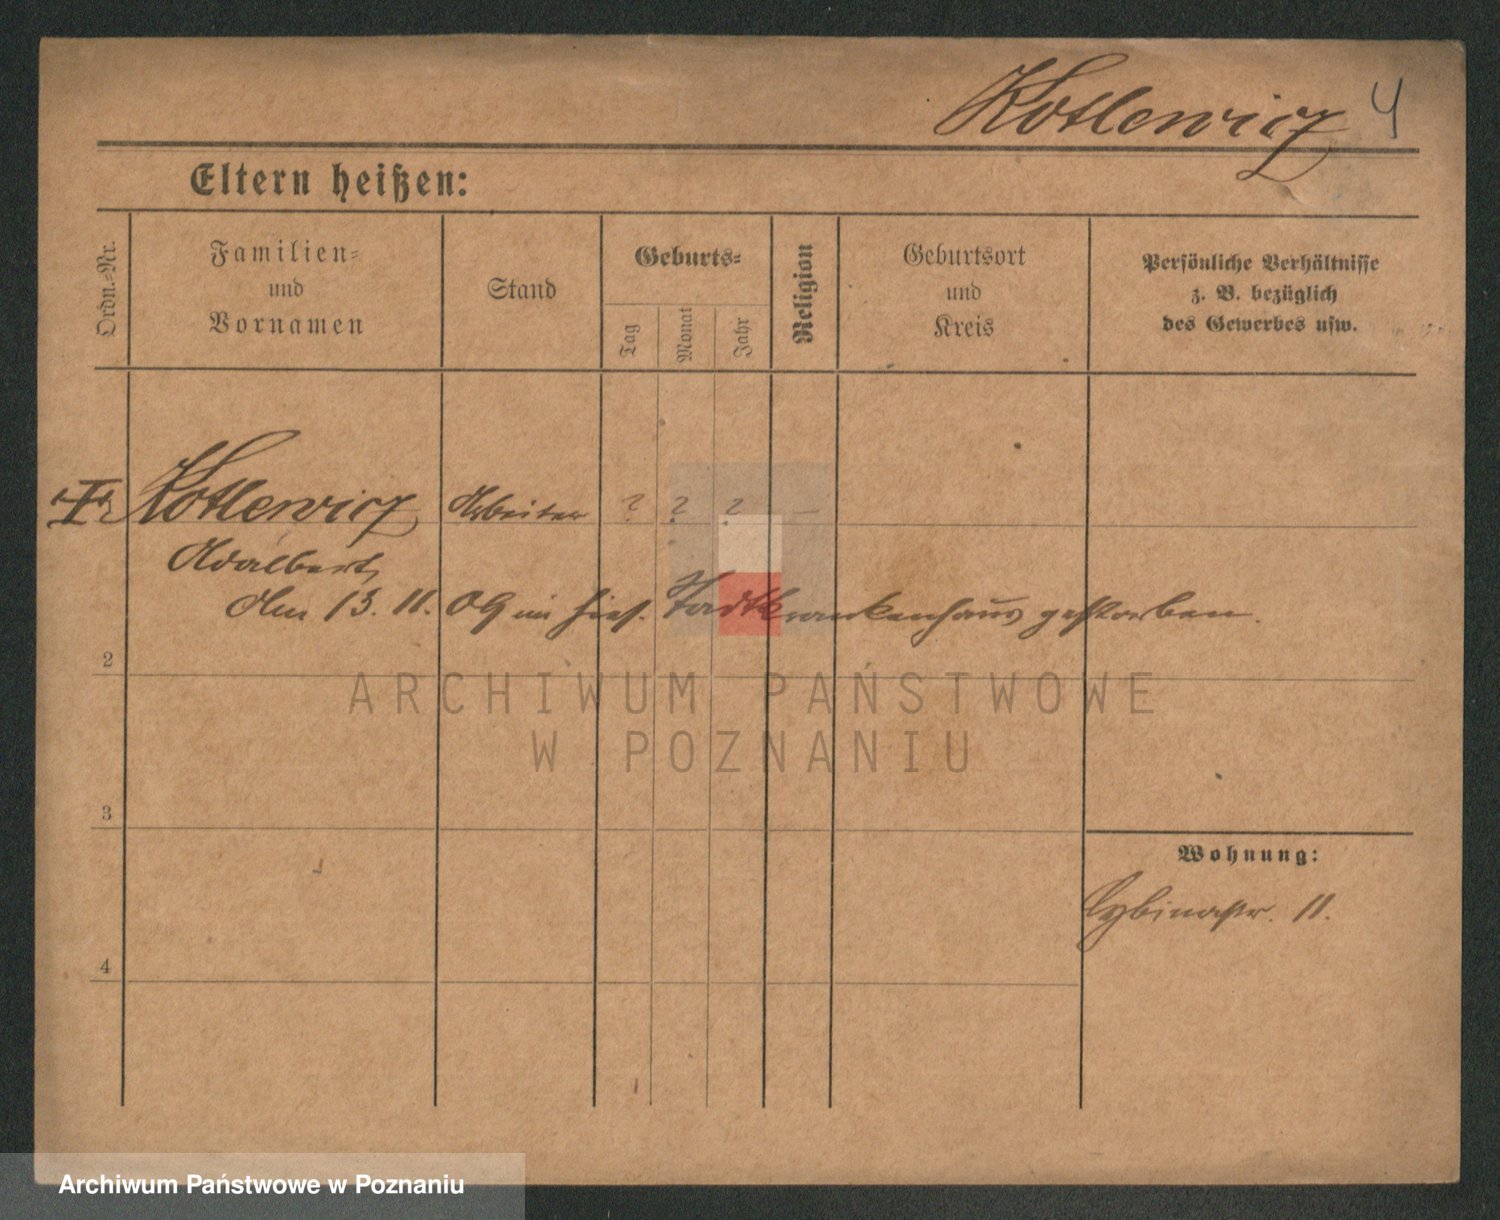 Kotlewicz 4
Eltern heißen:
Ordn.-Nr.
Familien-
und
Vornamen
Stand
Geburts-
Tag
Monat
Jahr
Religion
Geburtsort
und
Kreis
Persönliche Verhältnisse
z. B. bezüglich
des Gewerbes usw.
Kotlewicz Arbeiter ? ? ? —
Adalbert,
Am 13. 11. 09 im hies. Stadtkrankenhaus gestorben.
2
ARCHIWUM PAŃSTWOWE
W POZNANIU
3
Wohnung:
Cybinastr. 11.
4
Archiwum Państwowe w Poznaniu